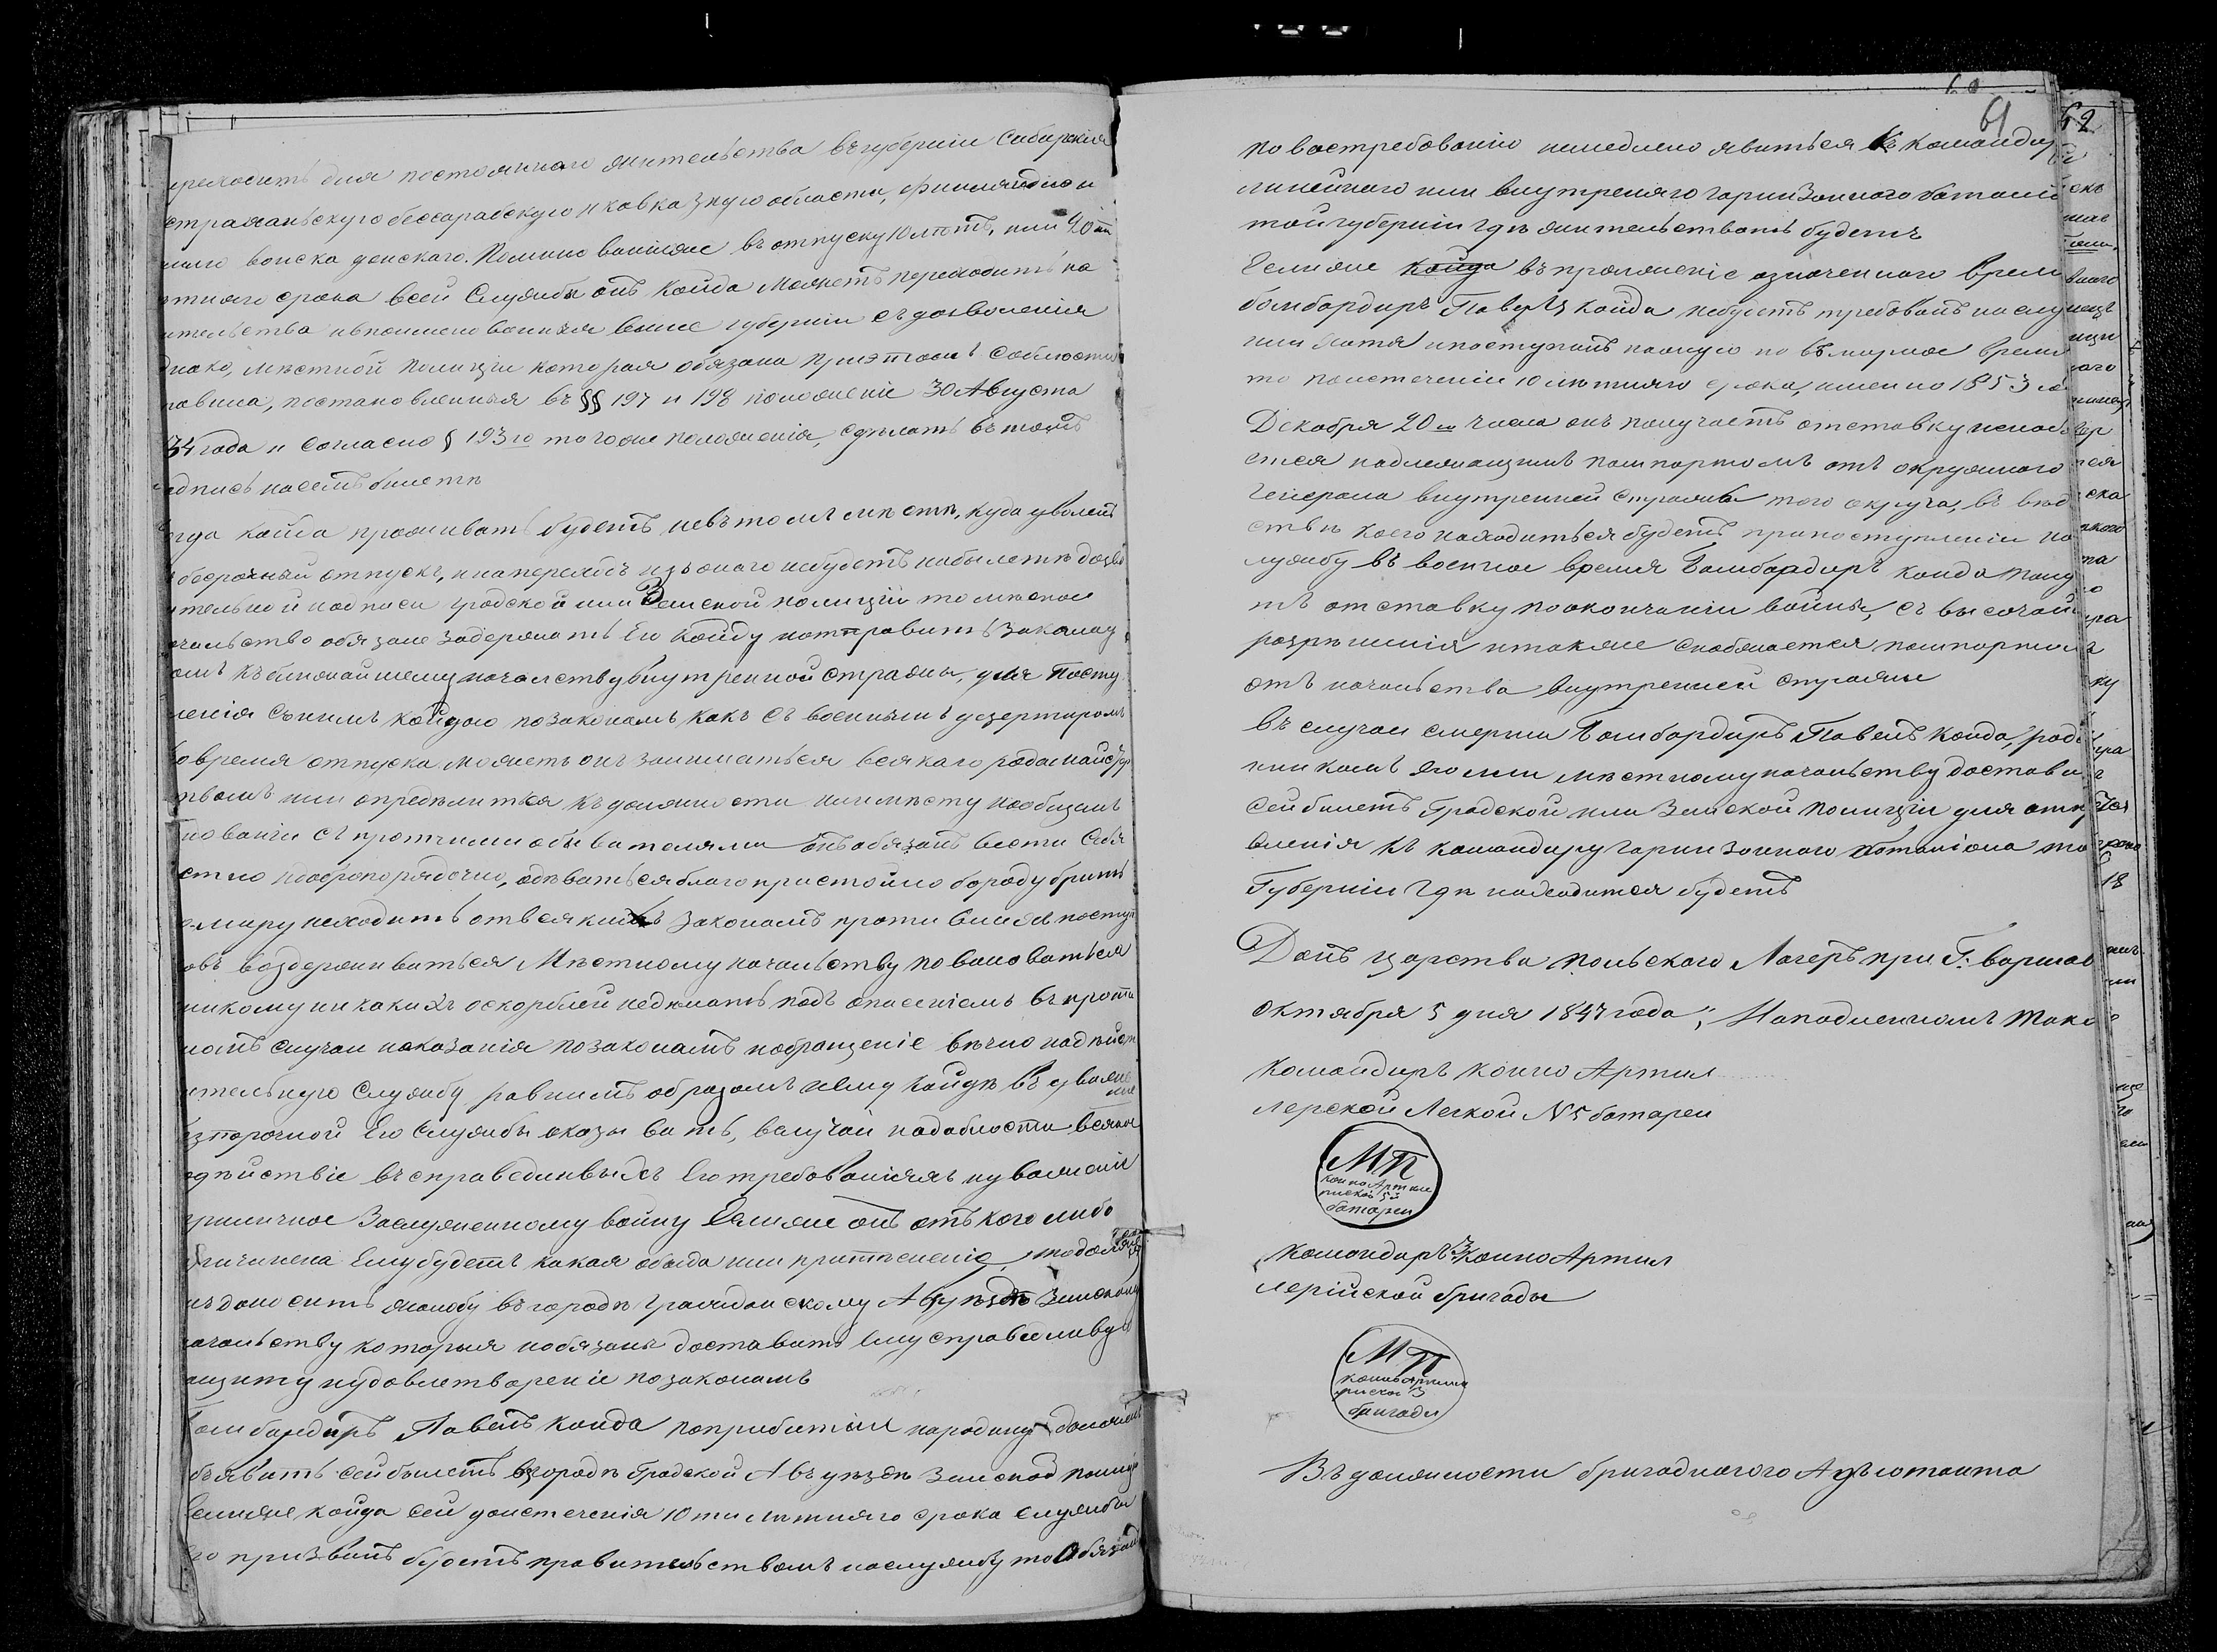 ереходить для постояннаго жительства въ губерніи Сибирскія
страханьскую бессарабскую и кавказкую области, Финляндію и
войска донскаго. Помимо въ отпуску 10 лѣтъ, или 20 ти
лѣтняго срока всей Службы онъ Койда Можетъ переходить на
жительства въ поименованныя выше губерніи съ дозволенія
однако, мѣстной полиціи которая обязана при этомъ соблюсти
правила, постановленныя въ §§ 197 и 198 положеніе 30 Августа
34 года и Согласно § 193 го того же положенія, сдѣлать въ томъ
надпись на семъ билетѣ
огда Койда проживать будетъ не въ томъ мѣстѣ, куда уволенъ
безсрочный отпускъ, и на переходъ изъ онаго не будетъ на билетѣ дозво
ительной надписи градской или Земской полиціи то мѣстное
ачальство обязане задержать Его Койду и отправить За караул
омъ къ ближайшему началству внутренной стражи, для Посту
ленія съ нимъ Койдою по законамъ какъ съ военнымъ дезертиромъ
Во время отпуска можетъ онъ заниматься всякаго рода майстер
твомъ или опредѣлиться къ должности или мѣсту на общемъ
нованіи съ протчими обывателями онъ обязанъ вести Себя
естно и добропорядочно, одѣваться благопристойно бороду брить
о миру не ходить отъ всякихъ законамъ противныхъ поступ
овъ воздерживаться Мѣстному начальству повиноваться
никому ни какихъ оскорблей не дѣлать подъ опасеніемъ въ проти
номъ случаи наказанія по законамъ и обращеніе вѣчно на дѣйст
ительную Службу равнимъ образомъ и ему Койдѣ въ уваже
ніе
езпорочной Его Службы оказывать, вслучаи надобности всякое
одѣйствіе въ справедливыхъ Его требованіяхъ и уваженіе
приличное Заслуженному воину Ежели онъ отъ кого либо
причинена Ему будетъ какая обыда или притѣсненіе, то долженъ
нъ доносить жалобу въ городѣ Гражданскому А въ уѣздѣ Земскому
начальству которыя и обязаны доставить Ему справедливую
ащиту и удовлетвореніе по законамъ
Бомбардиръ Павелъ Койда по прибытіи на родину должен
бъявить сей билетъ въ городѣ Градской А въ уѣздѣ Земской полиціи
Ежели же Койда сей до истеченія 10 ти лѣтняго срока службы
Его призванъ будетъ правительствомъ на службу то Обязанъ
61
62
по востребованію немедлено явиться къ командиру
линейнаго или внутреняго гарнизоннаго баталіо
той губерніи гдѣ жительствовать будетъ
Ежели же Койда въ продолженіе означеннаго време
бомбардиръ Павелъ Койда не будетъ требованъ на слу
или хотя и поступитъ на оную но въ мирное время
то по истеченіи 10 лѣтняго срока, именно 1853 го
Декабря 20 го числа онъ получаетъ отставку и снаб
ется надлежащимъ пашпортомъ отъ окружнаго
Генерала внутренней Стражи того округа, въ вѣд
ствѣ коего находиться будетъ при поступленіи на
лужбу въ военное время Бомбардиръ Койда полу
тъ отставку по окончаніи войны, съ высочай
разрѣшенія и также снабжается пашпортомъ
отъ начальства внутренней стражи
въ случаи смерти Бомбардиръ Павелъ Койда, род
никамъ Его или мѣстному начальству достави
сей билетъ Градской или Земской полиціи для отпр
вленія къ командиру гарнизонного баталіона то
Губерніи гдѣ находится будетъ
Данъ царства польскаго Лагерѣ при Г: варшав
Октября 5 дня 1847 года; На подленномъ тако
Командиръ Конно Артил
лерской Легкой № 5 батареи
МП
Конно Артиле
риской 5й
батареи
Командиръ 3: Конно Артил
лерійской бригады
МП
Конно Артиле
риской 3
бригады
Въ должности бригаднаго Адъютанта